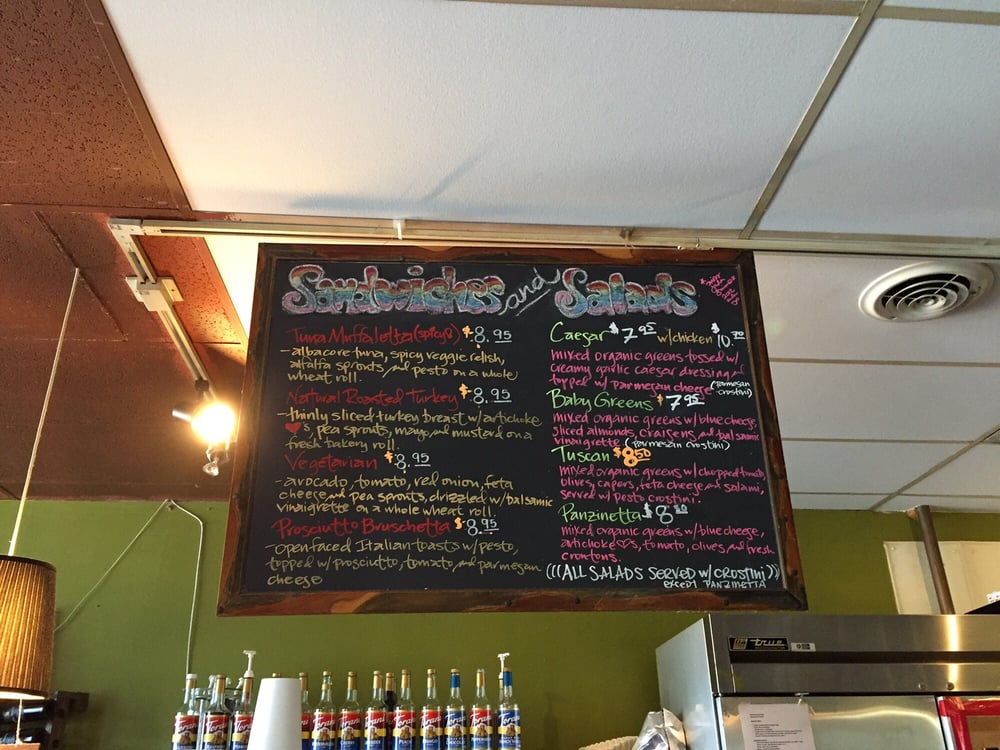 Sandwiches and Salads
Tuna Muffaletta (spicy) $8.95
- albacore tuna, spicy veggie relish,
alfalfa sprouts and pesto on a whole
wheat roll.
Natural Roasted Turkey $8.95
- thinly sliced turkey breast w/ artichoke
♥s, pea sprouts, mayo, and mustard on a
fresh bakery roll.
Vegetarian $8.95
- avocado, tomato, red onion, feta
cheese and pea sprouts, drizzled w/ balsamic
vinaigrette on a whole wheat roll.
Prosciutto Bruschetta $8.95
- open faced Italian toasts w/ pesto,
topped w/ prosciutto, tomato, and parmesan
cheese
Caesar $7.95 w/ chicken $10.70
mixed organic greens tossed w/
creamy garlic caesar dressing and
topped w/ parmesan cheese (parmesan
crostini)
Baby Greens $7.95
mixed organic greens w/ blue cheese,
sliced almonds, craisens, and balsamic
vinaigrette (parmesan crostini)
Tuscan $8.50
mixed organic greens w/ chopped tomato,
olives, capers, feta cheese and salami,
served w/ pesto crostini.
Panzinetta $8.50
mixed organic greens w/ blue cheese,
artichoke ♡s, tomato, olives, and fresh
croutons.
(((ALL SALADS SERVED w/ CROSTINI)))
EXCEPT PANZINETTA
true
Torani
Torani
Torani
Torani
Torani
Torani
Torani
Torani
Torani
Torani
Torani